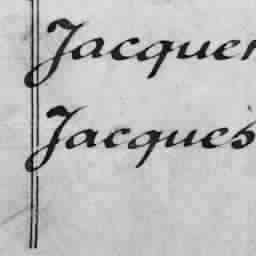 Jacquer
Jacques